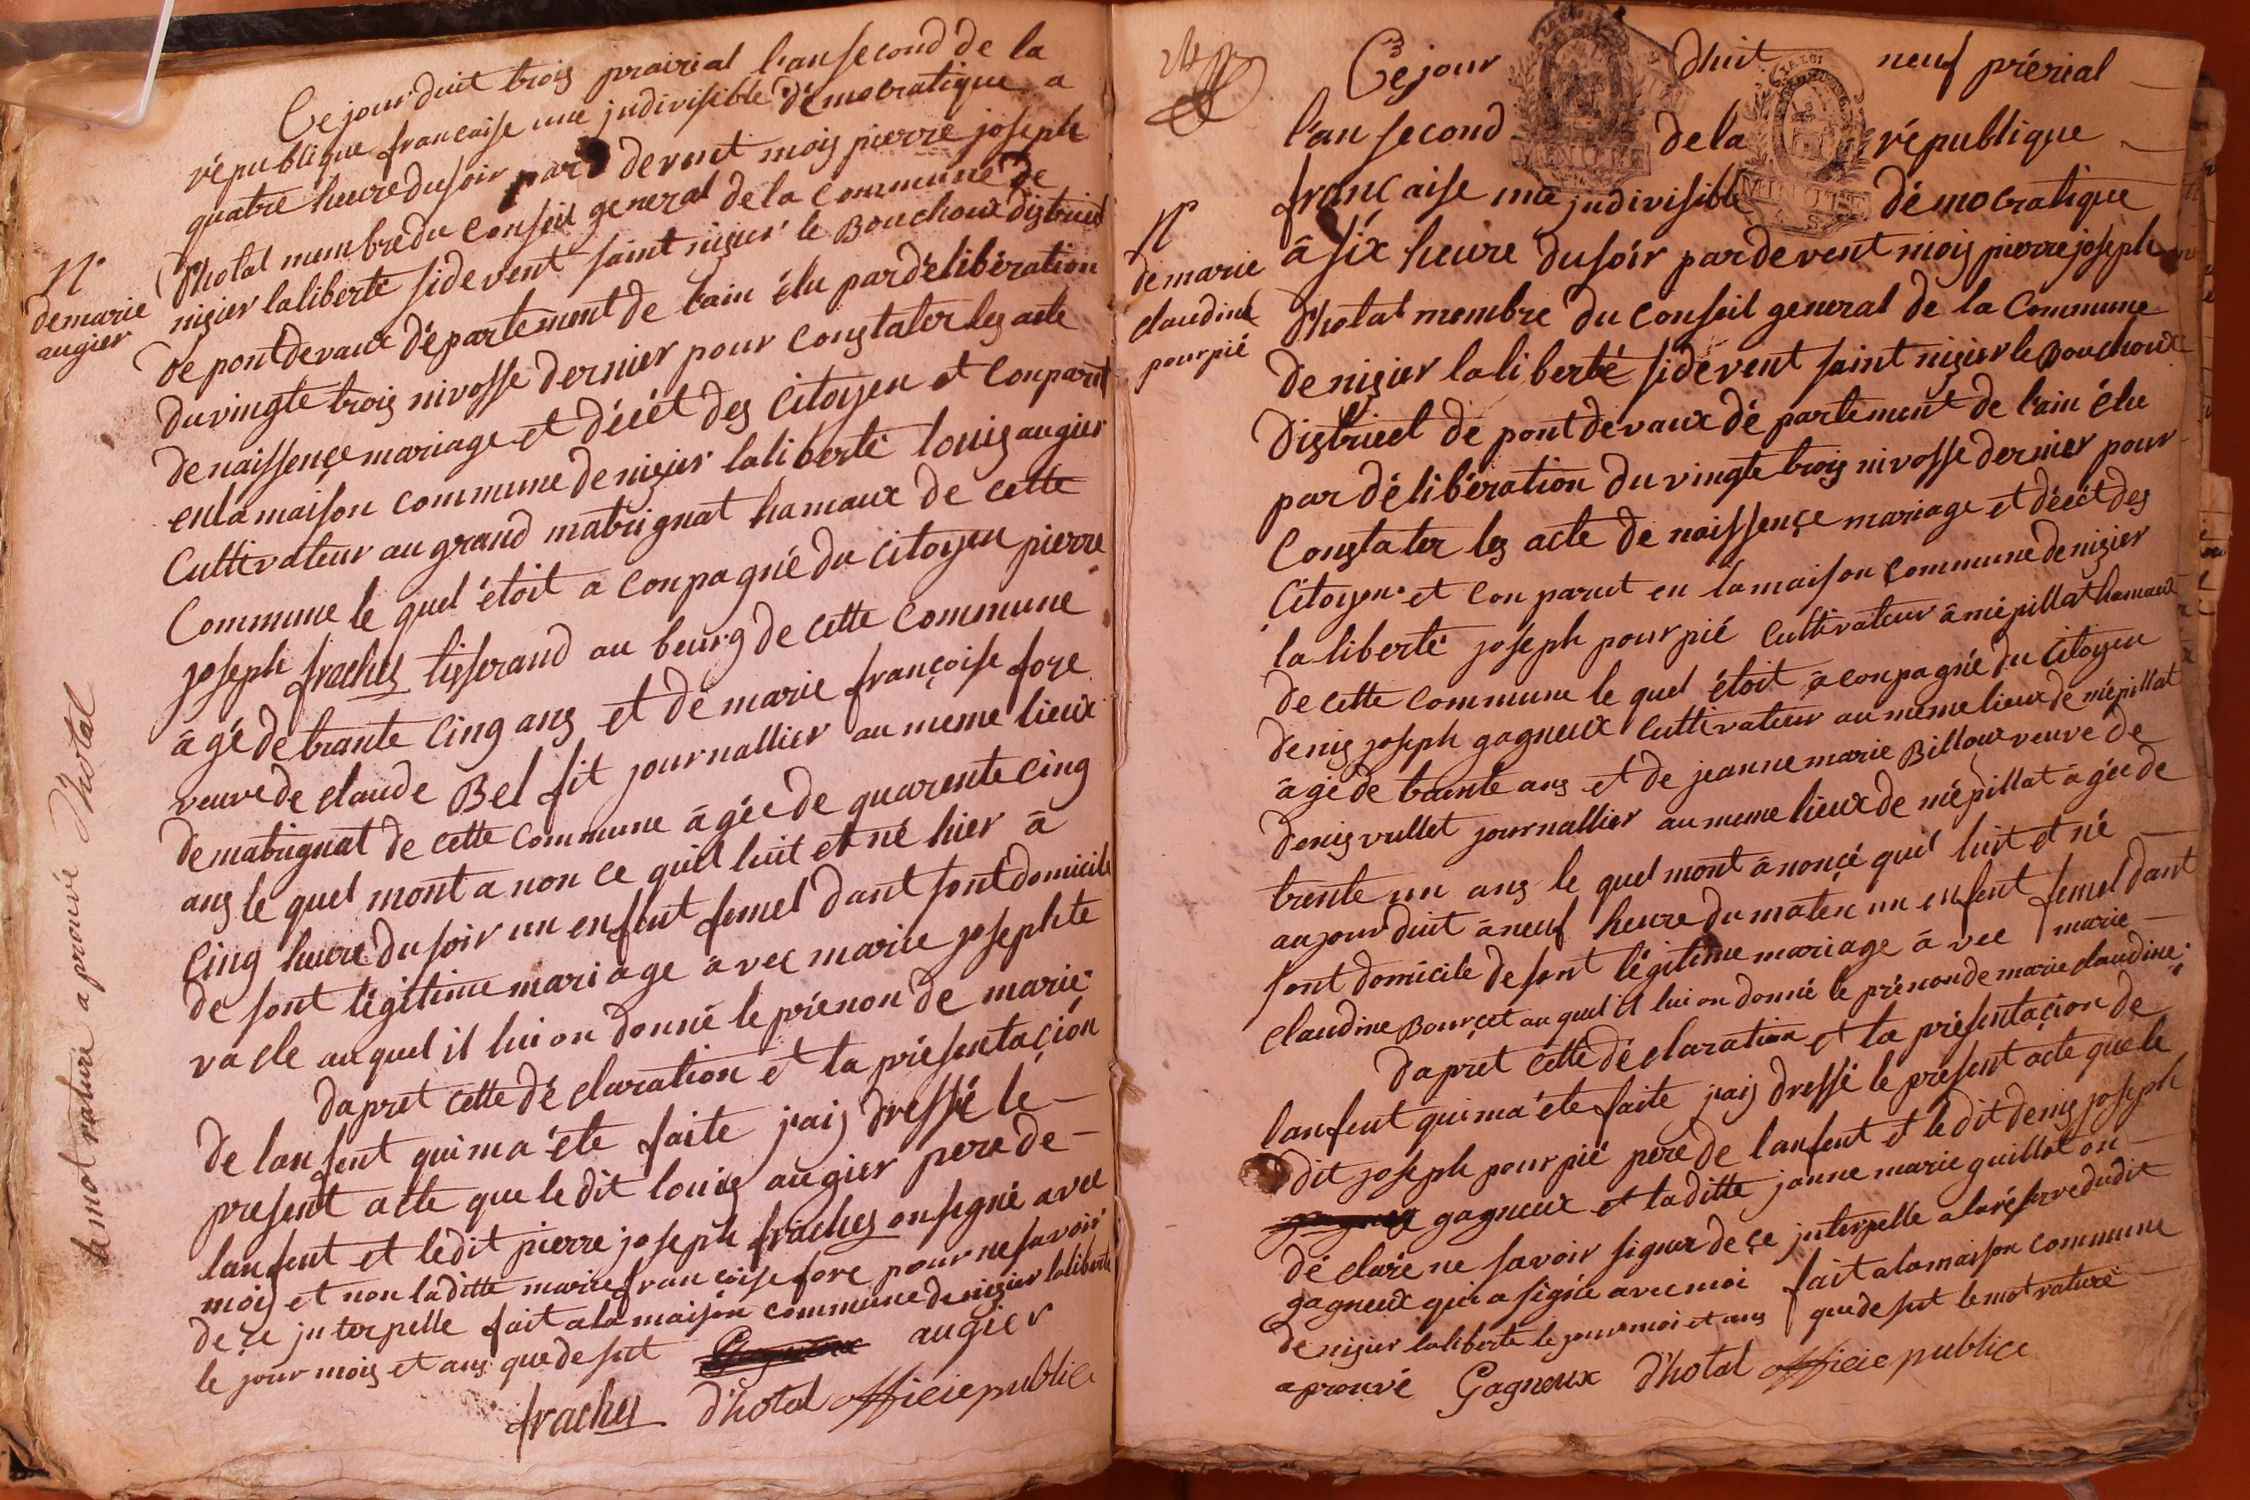 Ce jourduit trois prairial l'an second de la
république francaise une judivisible démocratique a
quatre heure du soir par devent mois pierre joseph
D'hotal membre du conseil general de la commune de
nizier laliberté sidevent saint nizier le Bouchoux district
de pontdevaux département de l'ain élu par délibération
du vingte trois nivosse dernier pour constater les acte
de naissençe mariage et décét des citoyen et conparut
en la maison commune de nizier laliberté louis augier
cultivateur au grand matrignat hamaux de cette
commune le quel étoit a conpagné du citoyen pierre
joseph fraches tisserand au bourg de cette commune
âgé de trante cinq ans et de marie françoise fore
veuve de claude Bel fit journallier au meme lieux
de matrignat de cette commune âgée de quarente cinq
ans le quel mont a non ce quil luit et né hier à
cinq heure du soir un enfent femel dant sont domicile
de sont légitime mariage àvec marie josephte
vacle auquel il lui on donné le prénon de marie
dapret cette déclaration et la présentaçion
de lanfent qui ma été faite jais dressé le
present acte que le dit louis augier pere de
lanfent et ledit pierre joseph fraches on segné avec
mois et non laditte marie francoise fore pour ne savoir
de çe jnterpelle fait a la maison commune de nizier laliberté
le jour mois et ans que desut augier
fraches d'hotal officie public
N.
de marie
augier
le mot rature a prouvé D'hotal
Ce jour duit neuf prérial
l'an second de la république
francaise une judivisible démocratique
à six heure du soir par devent mois pierre joseph
D'hotal membre du conseil general de la commune
de nizier laliberté sidevent saint nizier le Bouchoux
district de pontdevaux département de l'ain élu
par délibération du vingte trois nivosse dernier pour
constater les acte de naissençe mariage et décét des
citoyen et conparut en la maison commune de nizier
laliberté joseph pourpié cultivateur à mépillat hamaux
de cette commune le quel étoit àconpagnée du citoyen
denis joseph gagneux cultivateur au meme lieux de mépillat
âgé de trante ans et de jeanne marie Billoux veuve de
denis vullet journallier au meme lieux de mépillat âgée de
trente un ans le quel mont ànonçé quil luit et né
aujourduit à neuf heure du maten un enfent femel dant
sont domicile de sont légitime mariage àvec marie
claudine Bourçet auquel il lui on donné le prénon de marie claudine
dapret cette déclaration et la présentaçion de
lanfent qui ma été faite jais dressé le présent acte que le
dit joseph pourpié pere de lanfent et le dit denis joseph
gagneux et laditte janne marie guillot on
déclaré ne savoir signer de çe jnterpelle a la réserve dudit
gagneux qui a signée avec moi fait a la maison commune
de nizier laliberté le jour moi et ans que desut le mot raturé
aprouvé Gagneux D'hotal officie publice
N
de marie
claudine
pourpié